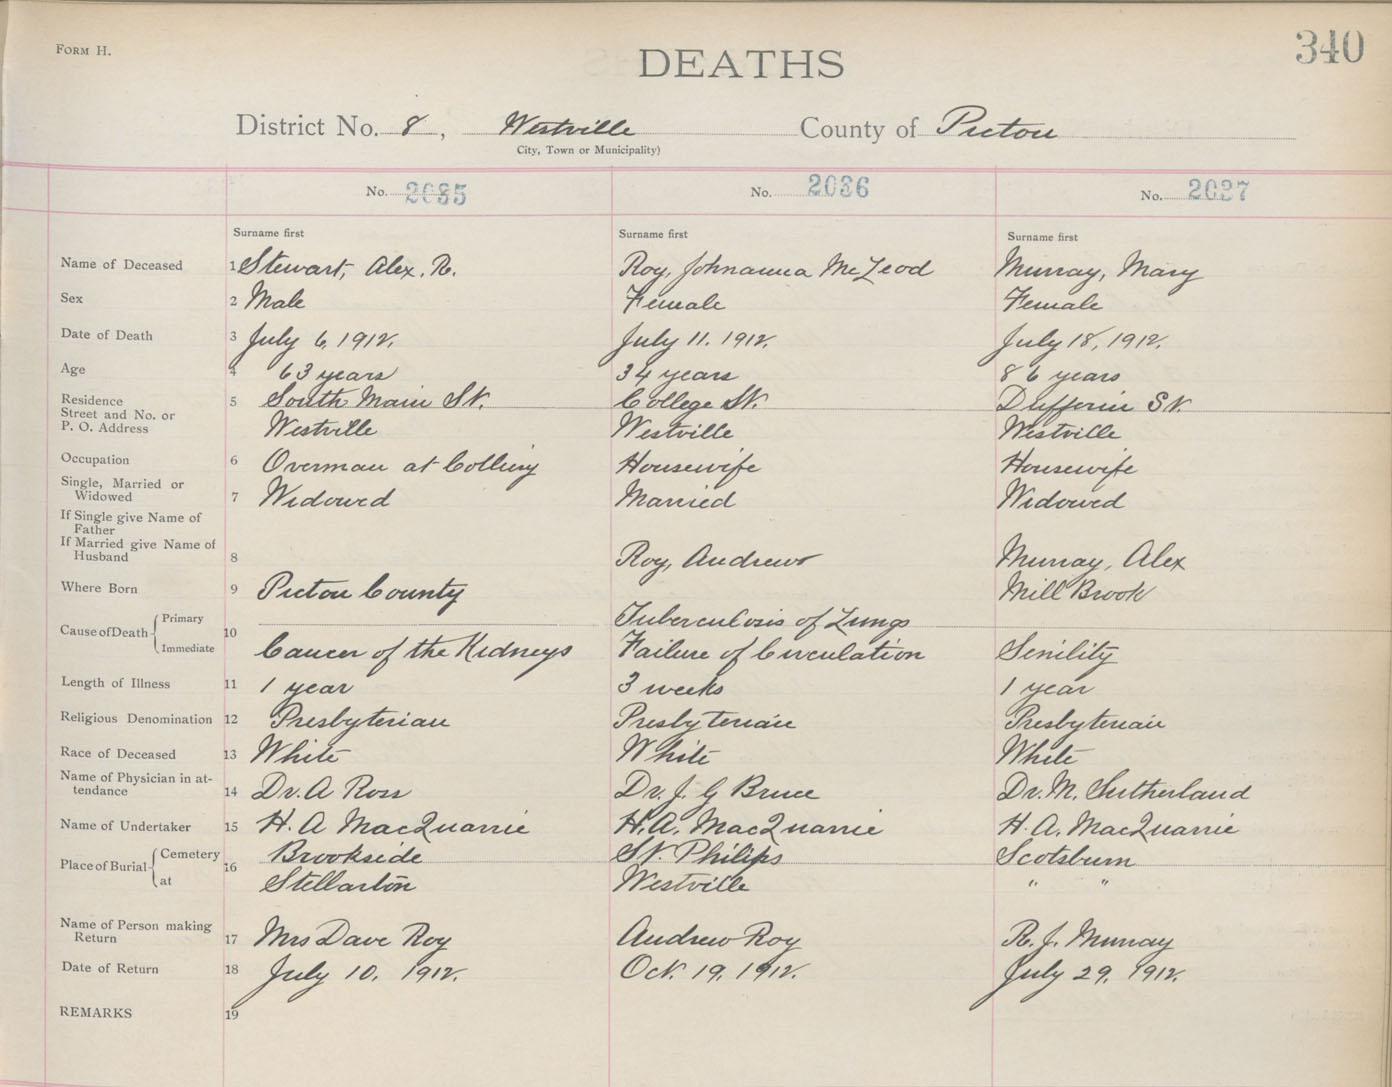 FORM H.
340
DEATHS
District No. 8, Westville County of Pictou
City, Town or Municipality)
No. 2035 No. 2036 No. 2037
Surname first Surname first Surname first
Name of Deceased 1 Stewart, Alex. R. Roy, Johnanna McLeod Murray, Mary
Sex 2 Male Female Female
Date of Death 3 July 6, 1912. July 11. 1912. July 18, 1912.
Age 4 63 years 34 years 86 years
Residence 5 South Main St. College St. Dufferin St.
Street and No. or
P. O. Address Westville Westville Westville
Occupation 6 Overman at Colliery Housewife Housewife
Single, Married or
Widowed 7 Widowed Married Widowed
If Single give Name of
Father
If Married give Name of
Husband 8 Roy, Andrew Murray, Alex
Where Born 9 Pictou County Mill Brook
Cause of Death { Primary 10 Tuberculosis of Lungs
Immediate Cancer of the Kidneys Failure of Circulation Senility
Length of Illness 11 1 year 3 weeks 1 year
Religious Denomination 12 Presbyterian Presbyterian Presbyterian
Race of Deceased 13 White White White
Name of Physician in at-
tendance 14 Dr. A Ross Dr. J. G Bruce Dr. M. Sutherland
Name of Undertaker 15 H. A MacQuarrie H. A. MacQuarrie H. A. MacQuarrie
Place of Burial { Cemetery 16 Brookside St. Philips Scotsburn
at Stellarton Westville " "
Name of Person making
Return 17 Mrs Dave Roy Andrew Roy R. J. Murray
Date of Return 18 July 10. 1912. Oct. 19, 1912. July 29, 1912.
REMARKS 19